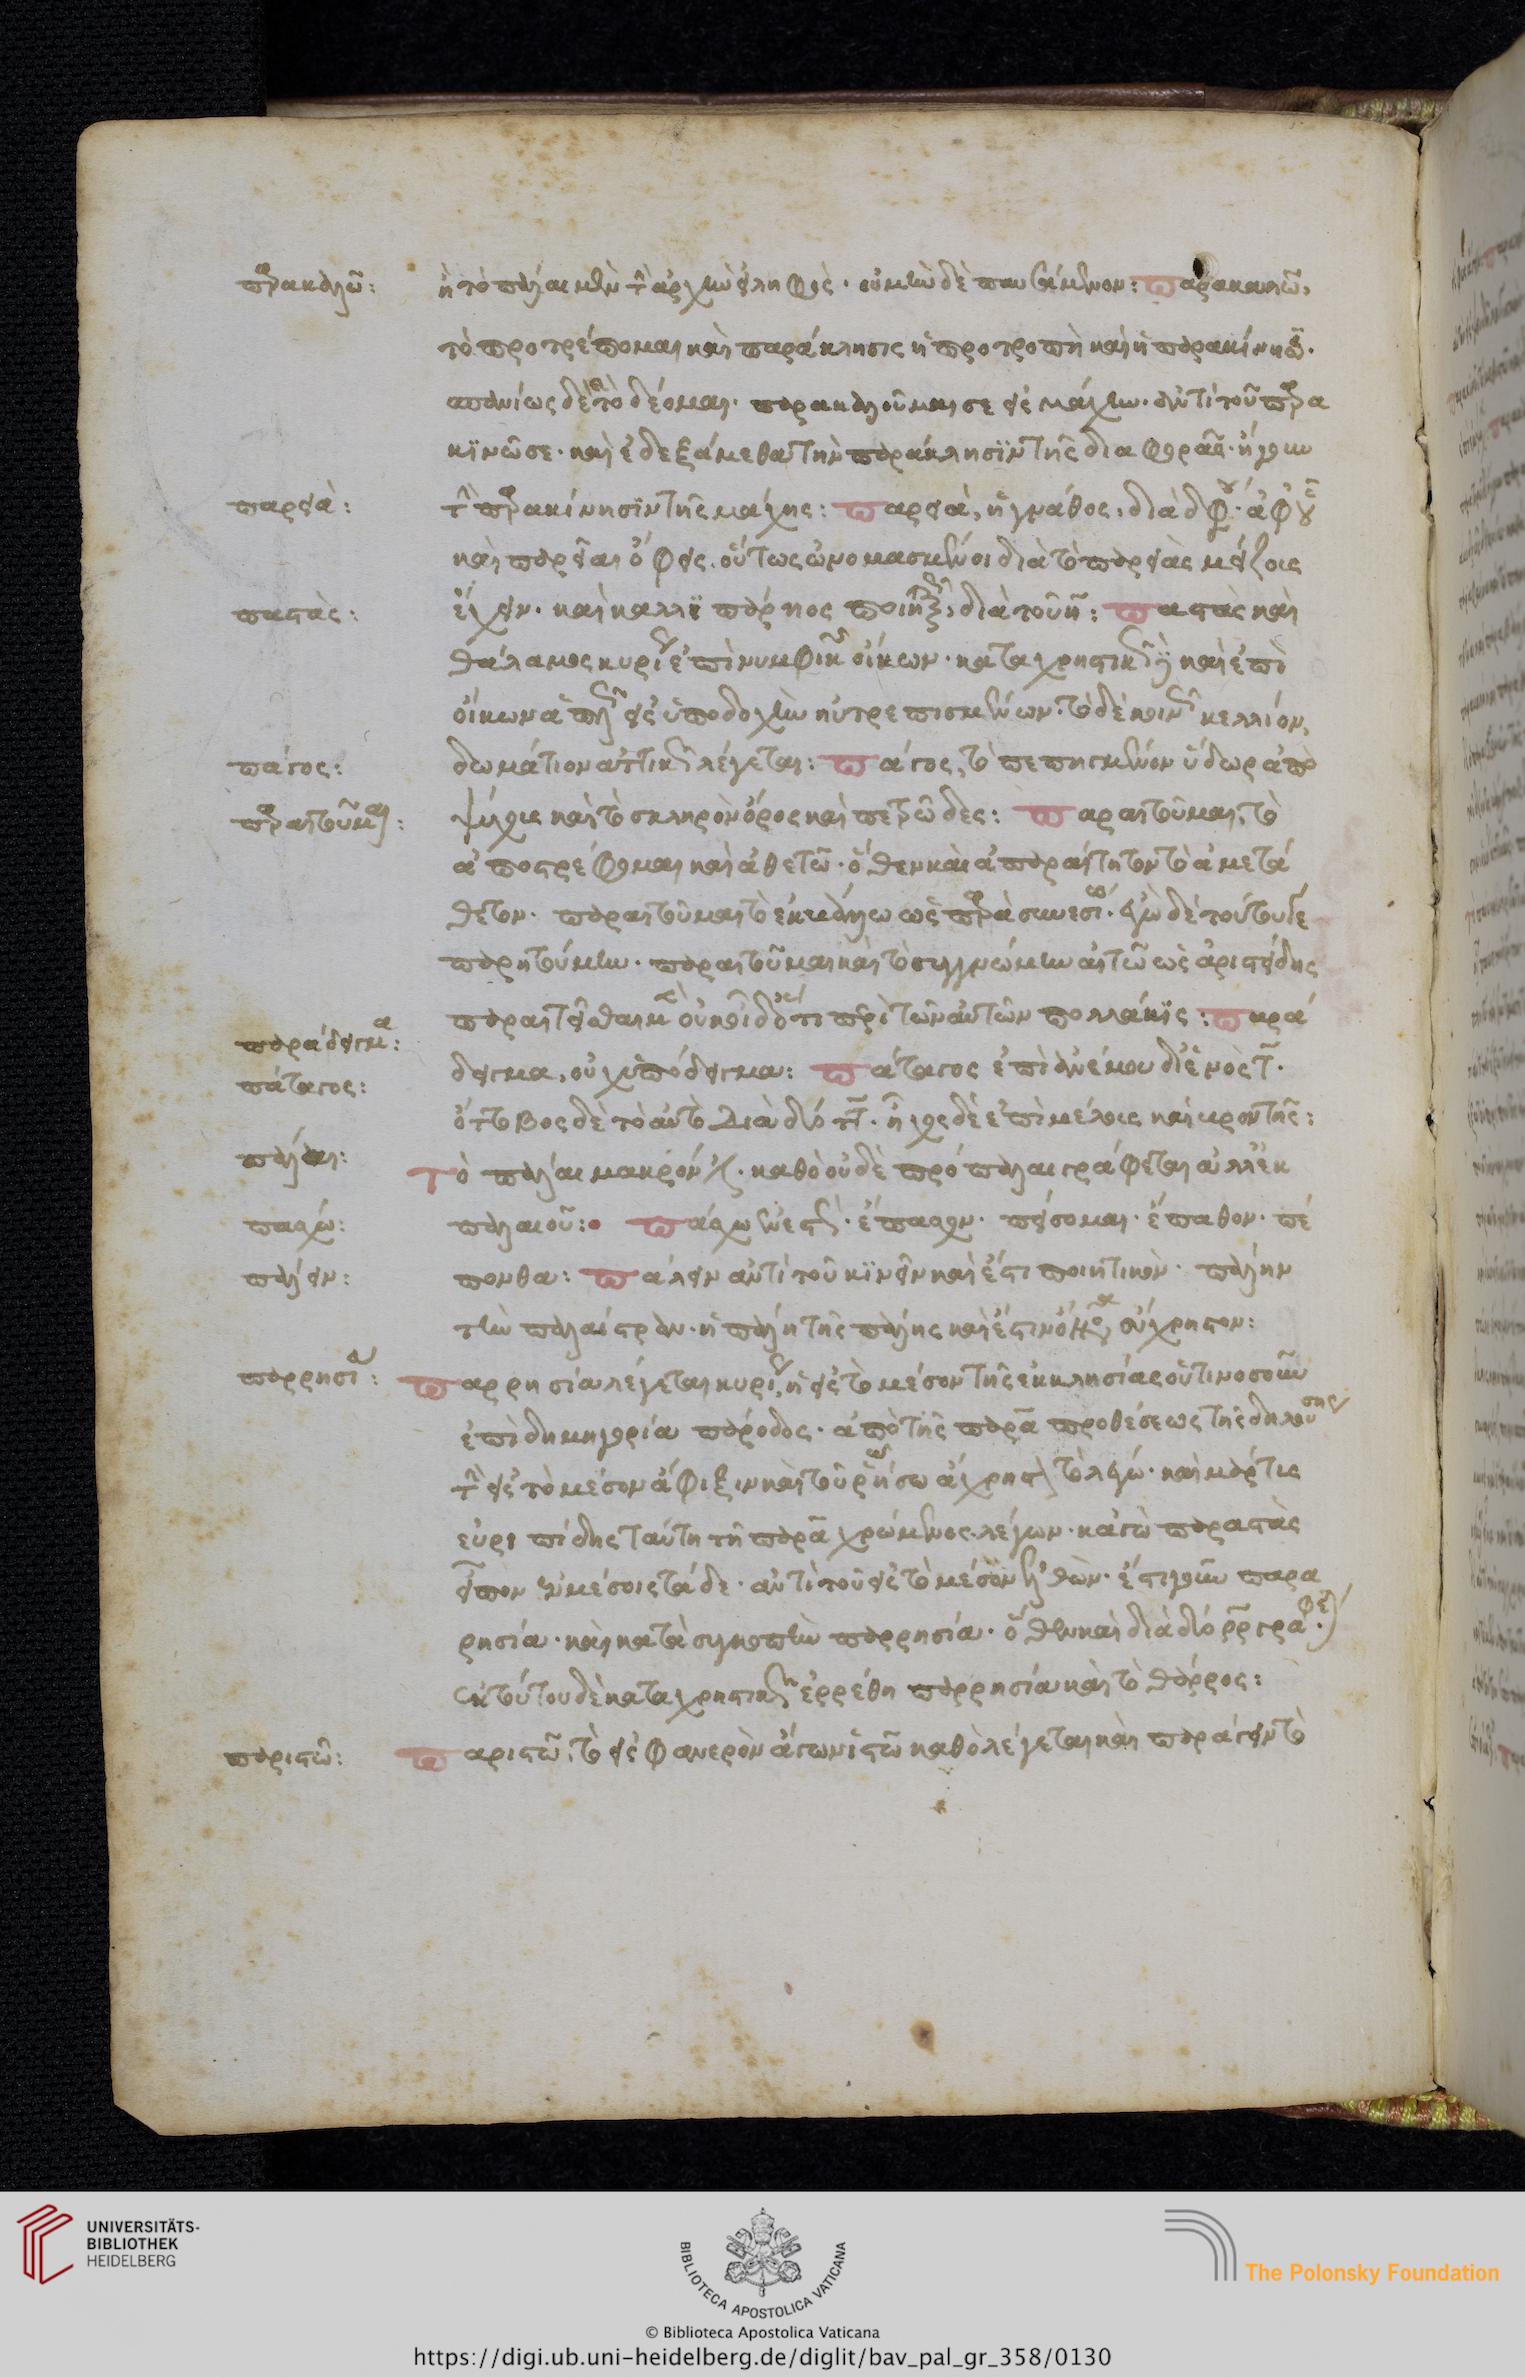 παρακαλῶ:
ἢ τὸ πάλαι μὲν τὴν ἀρχὴν εἴληφε. οὐ μὴν δὲ παυσάμενον: Παρακαλῶ,
τὸ προτρέπομαι καὶ παράκλησις ἡ προτροπὴ καὶ ἡ παρακίνησις.
σπανίως δὲ καὶ τὸ δέομαι. παρακαλοῦμαι σε εἰς μάχην. ἀντὶ τοῦ παρα
κινῶ σε. καὶ ἐδεξάμεθα τὴν παράκλησιν τῆς διαφορᾶς. ἤγουν
παρειά:
τὴν παρακίνησιν τῆς μάχης: Παρειά, ἡ γνάθος, διὰ διφθόγγου. ἀφ' οὗ
καὶ παρεῖαι ὄφεις. οὕτως ὠνομασμένοι διὰ τὸ παρειὰς μείζοις
παστὰς:
ἔχειν. καὶ καλλιπάρηος διὰ τοῦ η: Παστὰς καὶ
θάλαμος κυρίως ἐπὶ νυμφικῶν οἴκων. καταχρηστικῶς καὶ ἐπὶ
οἴκων ἁπλῶς εἰς ὑποδοχὴν ηὐτρεπισμένων. τὸ δὲ κοινῶς κελλίον,
δωμάτιον ἀττικῶς λέγεται: Πάγος, τὸ πεπηγμένον ὕδωρ ἀπὸ
πάγος:
παραιτοῦμαι:
ψύχους καὶ τὸ σκληρὸν ὄρος καὶ πετρῶδες: Παραιτοῦμαι, τὸ
ἀποστρέφομαι καὶ ἀθετῶ. ὅθεν καὶ ἀπαραίτητον τὸ ἀμετά
θετον. παραιτοῦμαι τὸ ἐκβάλλω ὡς παρὰ συνεσίῳ.
παρῃτούμην. παραιτοῦμαι καὶ τὸ συγγνώμην αἰτῶ ὡς ἀριστείδης
παραιτεῖσθαι περὶ τῶν αὐτῶν πολλάκις: Παρά
παράδειγμα:
δειγμα, οὐχ ὑπόδειγμα: Πάταγος ἐπὶ ἀνέμου δι' ἑνὸς τ.
πάταγος:
ὄττοβος δὲ τὸ αὐτὸ διὰ δύο ττ. ἦχος δὲ ἐπὶ μέλους καὶ βροντῆς:
πάλαι:
Τὸ πάλαι μακρόν ἐστι. καθὸ οὐδὲ πρόπαλαι γράφεται ἀλλ' ἐκ
πάσχω:
παλαιοῦ: Πάσχω ἐνεστώς. ἔπασχον. πείσομαι. ἔπαθον. πέ
πάλλειν:
πονθα: Πάλλειν ἀντὶ τοῦ κινεῖν καὶ ἔστι ποιητικόν. πάλην
τὴν παλαίστραν. ἡ πάλη τῆς πάλης καὶ ἔστιν ὄνομα εὔχρηστον:
παρρησία:
Παρρησία λέγεται κυρίως, ἡ εἰς τὸ μέσον τῆς ἐκκλησίας οὑτινοσοῦν
ἐπὶ δημηγορία πάροδος. ἀπὸ τῆς παρὰ προθέσεως τῆς δηλούσης
τὴν εἰς τὸ μέσον ἄφιξιν καὶ τοῦ ῥήσω ἀχρήστου τὸ λέγω. καὶ μάρτυς
εὐριπίδης ταύτῃ τῇ παρὰ χρώμενος λέγων. κἀγὼ παραστὰς
εἶπον ἐν μέσοις τάδε. ἀντὶ τοῦ εἰς τὸ μέσον ἐλθών. ἔστι γοῦν παρα
ρησία. καὶ κατὰ συγκοπὴν παρρησία. ὅθεν καὶ διὰ δύο ρρ γράφεται.
ἐκ τούτου δὲ καταχρηστικῶς ἐρρέθη παρρησία καὶ τὸ θάρρος:
παριστῶ:
Παριστῶ, τὸ εἰς φανερὸν ἄγων ἱστῶ καθὸ λέγεται καὶ παράγειν τὸ
UNIVERSITÄTS-
BIBLIOTHEK
HEIDELBERG
BIBLIOTECA APOSTOLICA VATICANA
The Polonsky Foundation
© Biblioteca Apostolica Vaticana
https://digi.ub.uni-heidelberg.de/diglit/bav_pal_gr_358/0130